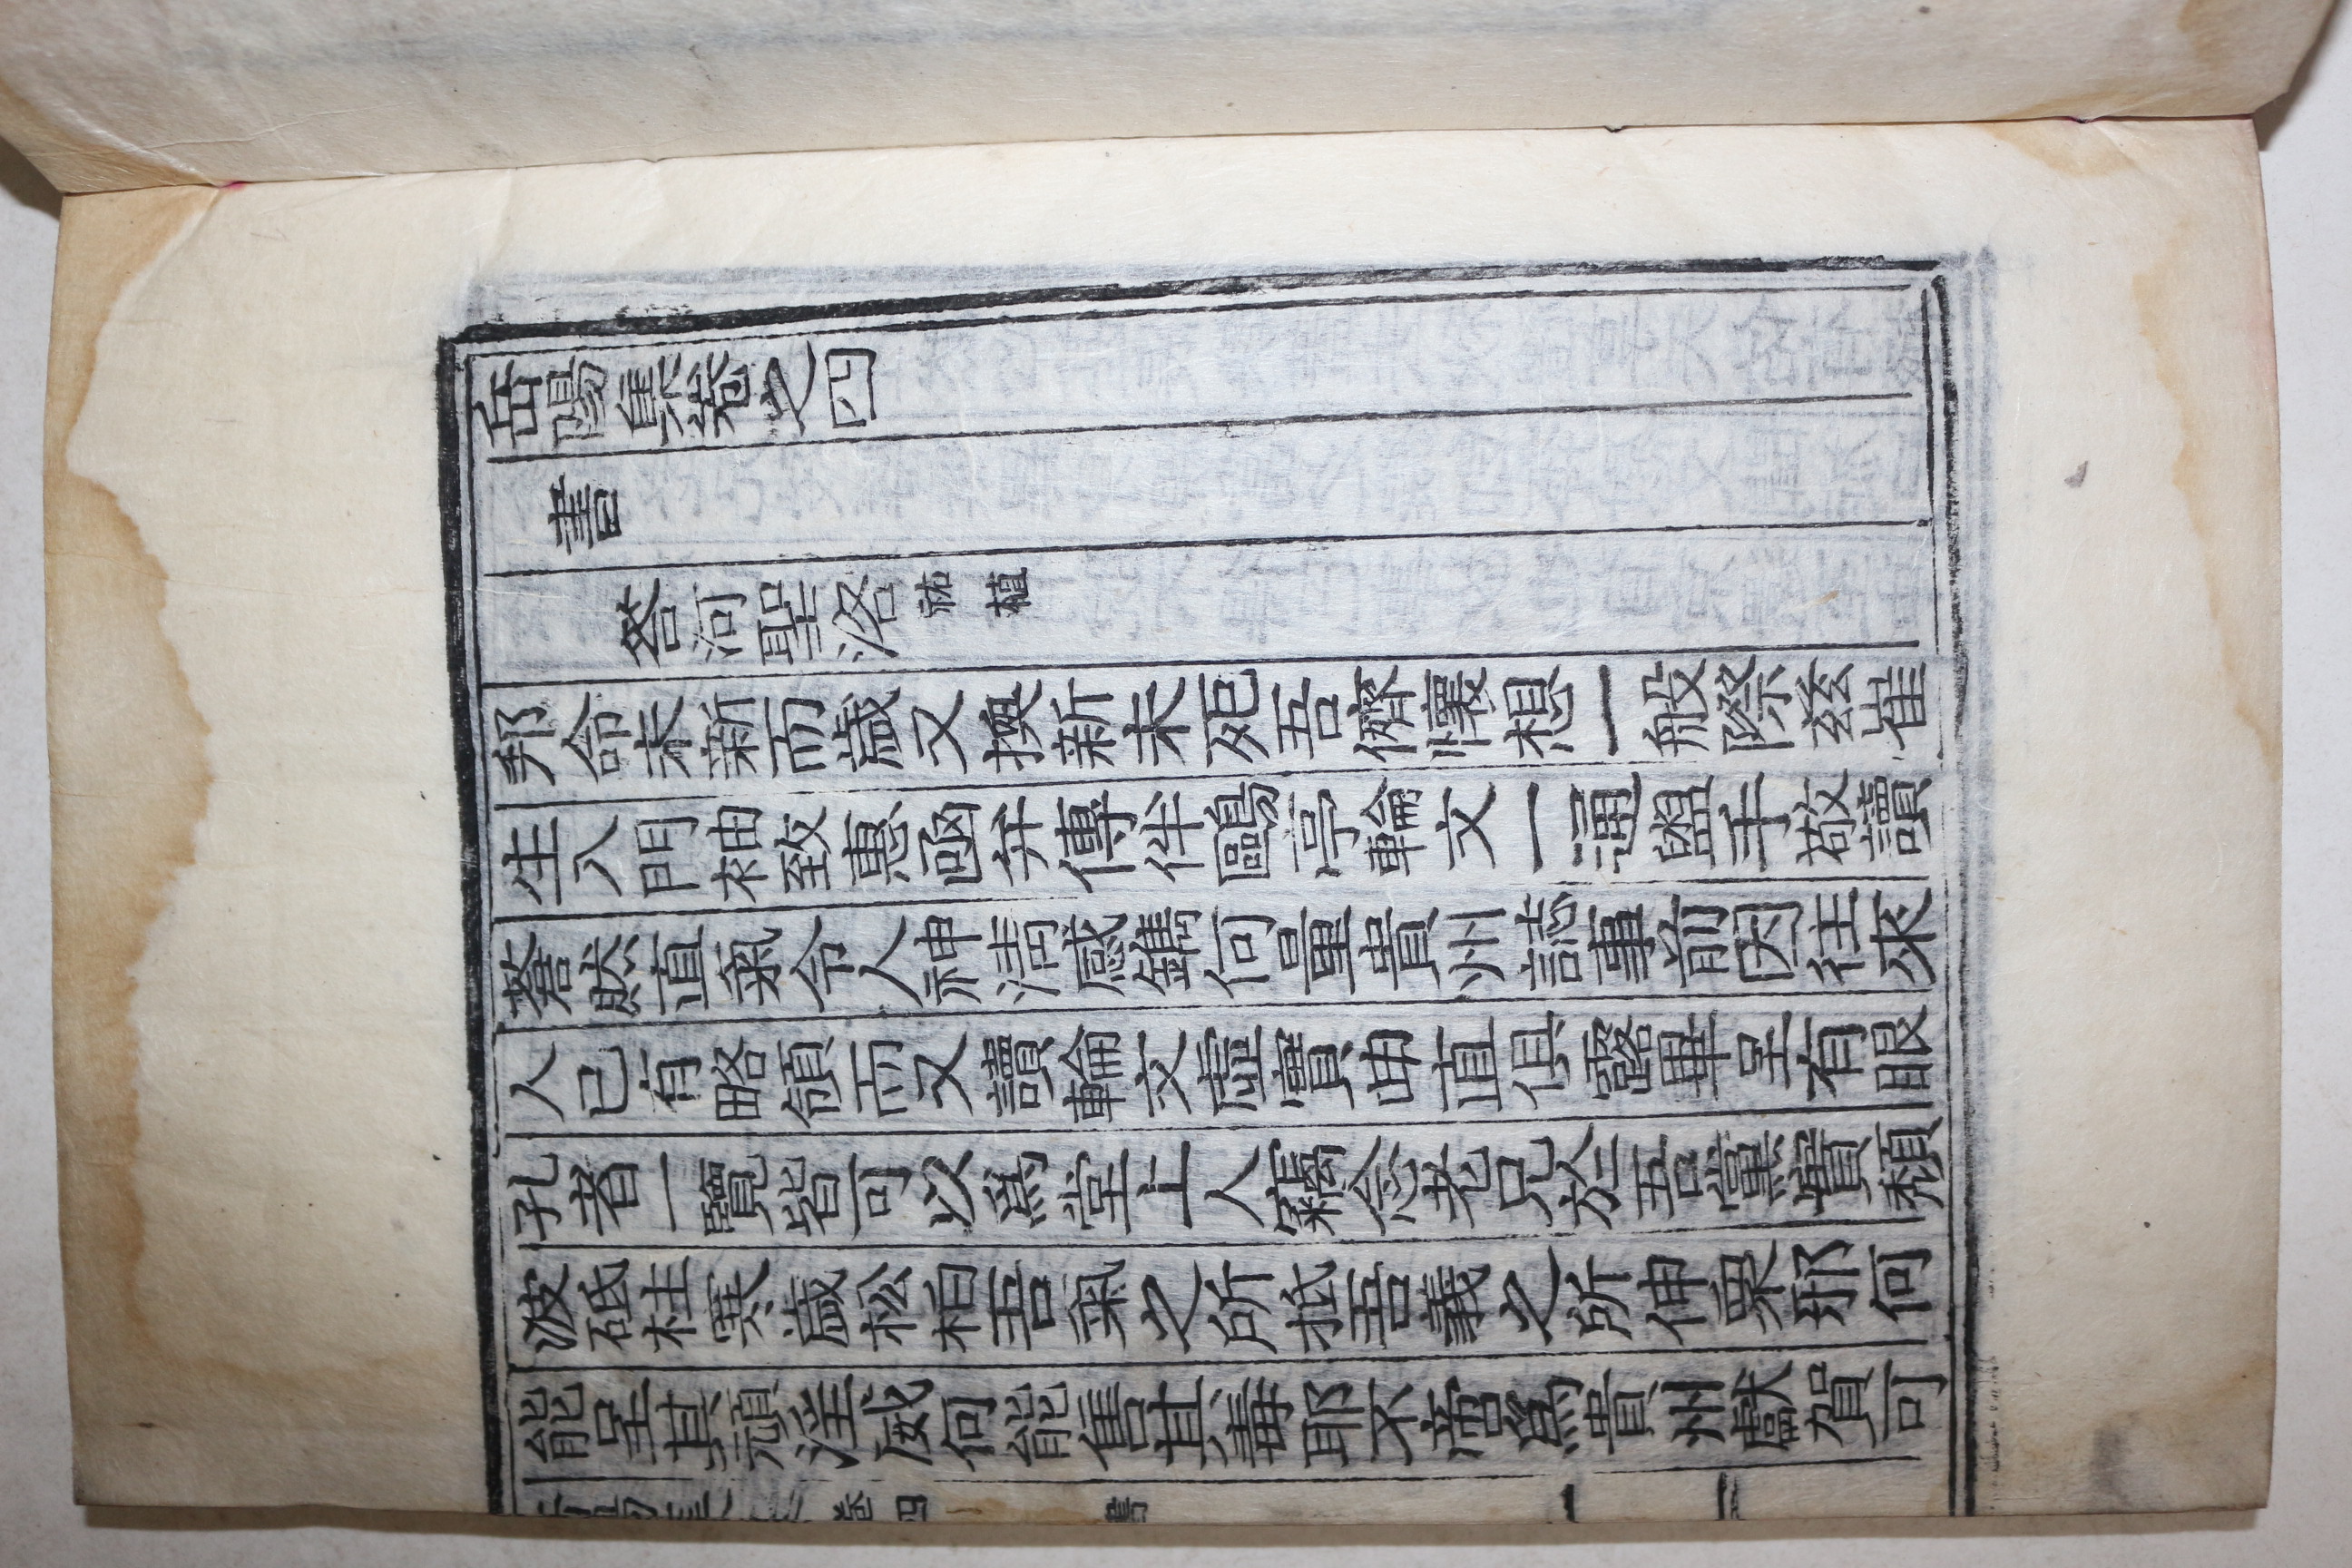 岳陽集卷之四
書
答河聖洛 祐植
邦命未新而歲又換新未死吾儕懷想一般際玆崔
生入門袖致惠函弁傳伴鷗亭輪文一通盥手敬讀
蒼然直氣令人神淸感鐫何量貴州誌事前因往來
人已有略領而又讀輪文虛實曲直俱露畢呈有眼
孔者一覽皆可以爲堂上人竊念老兄於吾黨實頹
波砥柱寒歲松栢吾氣之所抵吾義之所伸異邪何
能呈其頑淫威何能售其毒耶不啻爲貴州獻賀可